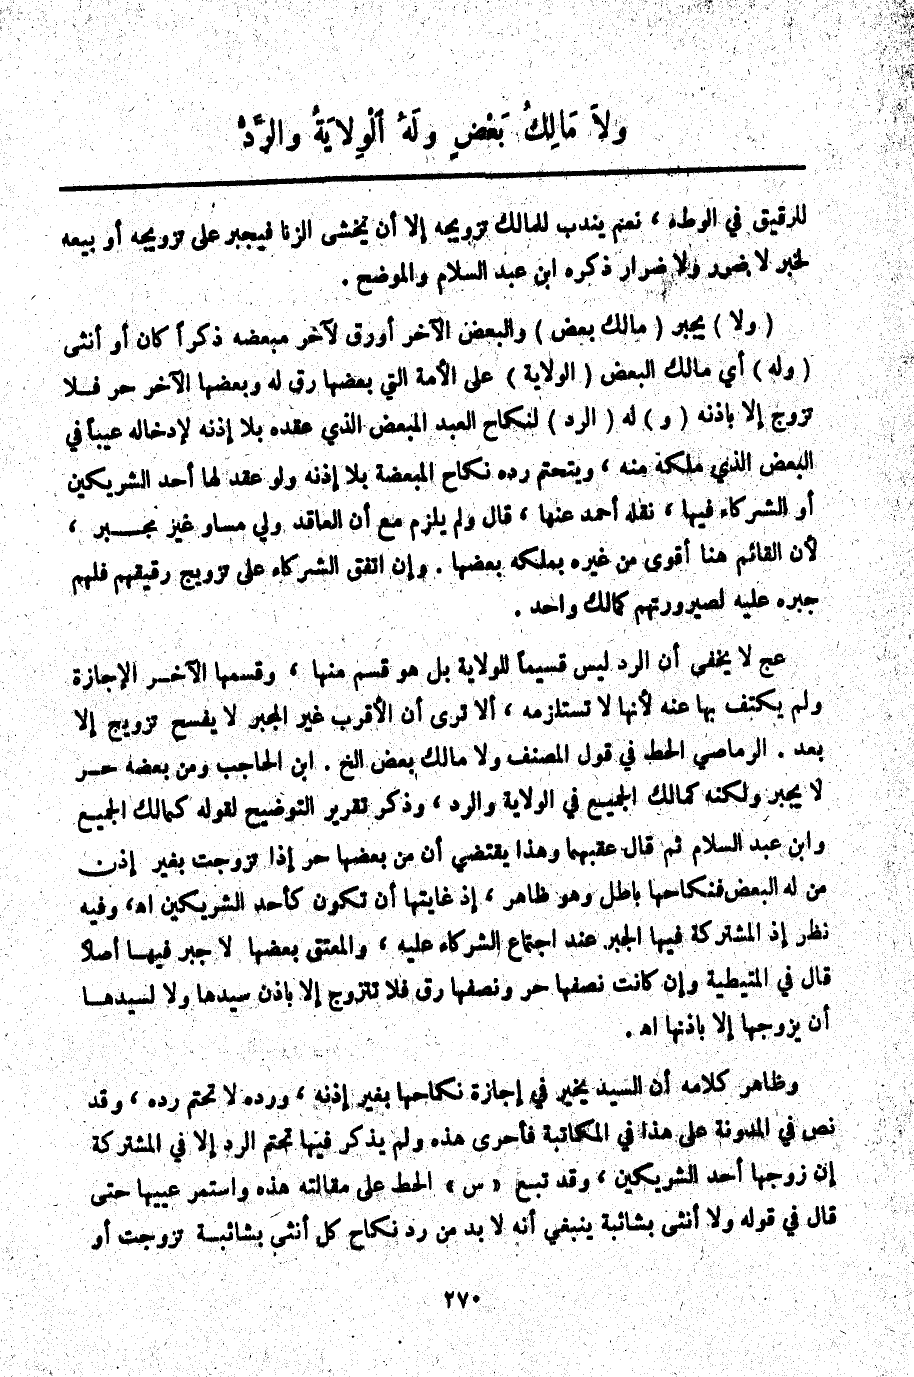 ولاَ مَالِكُ بَعْضٍ ولَهُ ٱلْوِلايَةُ والرَّدُّ
للرقيق في الوطء ، نعم يندب للمالك تزويجه إلا أن يخشى الزنا فيجبر على تزويجه أو بيعه
لخبر لا ضرر ولا ضرار ذكره ابن عبد السلام والموضح .
( ولا ) يجبر ( مالك بعض ) والبعض الآخر أورق لآخر مبعضه ذكراً كان أو أنثى
( وله ) أي مالك البعض ( الولاية ) على الأمة التي بعضها رق له وبعضها الآخر حر فـلا
تزوج إلا باذنه ( و ) له ( الرد ) لنكاح العبد المبعض الذي عقده بلا إذنه لإدخاله عيباً في
البعض الذي ملكه منه ، ويتحتم رده نكاح المبعضة بلا إذنه ولو عقد لها أحد الشريكين
أو الشركاء فيها ، نقله أحمد عنها ، قال ولم يلزم مع أن العاقد ولي مساو غير مجـــبر ،
لأن القائم هنا أقوى من غيره بملكه بعضها . وإن اتفق الشركاء على تزويج رقيقهم فلهم
جبره عليه لصيرورتهم كمالك واحد .
عج لا يخفى أن الرد ليس قسيماً للولاية بل هو قسم منها ، وقسمها الآخـر الإجازة
ولم يكتف بها عنه لأنها لا تستلزمه ، ألا ترى أن الأقرب غير المجبر لا يفسح تزويج إلا
بعد . الرماصي الحط في قول المصنف ولا مالك بعض الخ . ابن الحاجب ومن بعضه حـر
لا يجبر ولكنه كمالك الجميـع في الولاية والرد ، وذكر تقرير التوضيح لقوله كمالك الجميع
وابن عبد السلام ثم قال عقبهما وهذا يقتضي أن من بعضها حر إذا تزوجت بغير إذن
من له البعض فنكاحها باطل وهو ظاهر ، إذ غايتها أن تكون كأحد الشريكين اه ، وفيه
نظر إذ المشتركة فيها الجبر عند اجتماع الشركاء عليه ، والمعتق بعضها لا جبر فيهـا أصلا
قال في المتيطية وإن كانت نصفها حر ونصفها رق فلا تتزوج إلا باذن سيدها ولا لسيدهـا
أن يزوجها إلا باذنها اه .
وظاهر كلامه أن السيد يخير في إجازة نكاحها بغير إذنه ، ورده لا تحتم رده ، وقد
نص في المدونة على هذا في المكاتبة فأحرى هذه ولم يذكر فيها تحتم الرد إلا في المشتركة
إن زوجها أحد الشريكين ، وقد تبـع « س » الحط على مقالته هذه واستمر عييها حتى
قال في قوله ولا أنثى بشائبة ينبغي أنه لا بد من رد نكاح كل أنثى بشائبـة تزوجت أو
٢٧٠